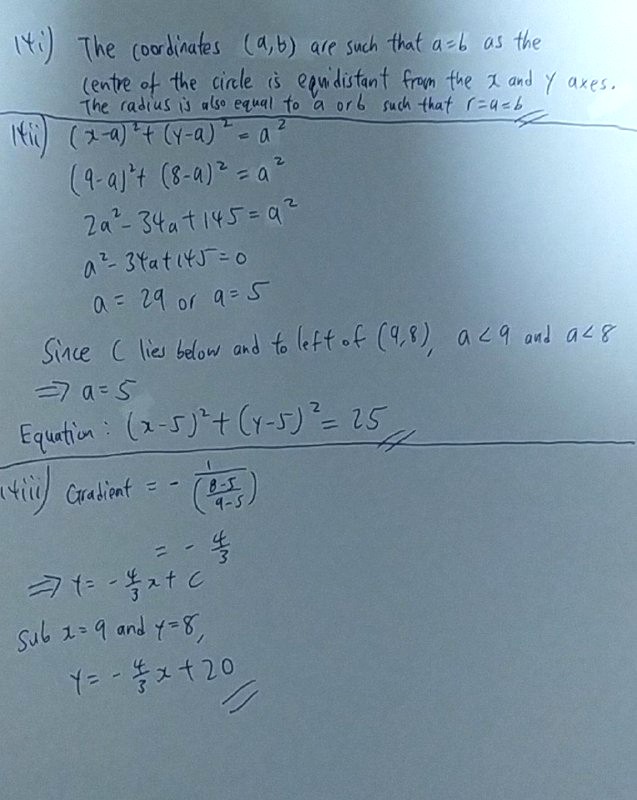 14i) The coordinates (a,b) are such that a=b as the
centre of the circle is equidistant from the x and y axes.
The radius is also equal to a or b such that r=a=b
14ii) (x-a)²+(y-a)²=a²
(9-a)²+(8-a)²=a²
2a²-34a+145=a²
a²-34a+145=0
a=29 or a=5
Since C lies below and to left of (9,8), a<9 and a<8
⇒ a=5
Equation: (x-5)²+(y-5)²=25
14iii) Gradient = - 1/((8-5)/(9-5))
= - 4/3
⇒ y= - 4/3 x + c
Sub x=9 and y=8,
y= - 4/3 x + 20